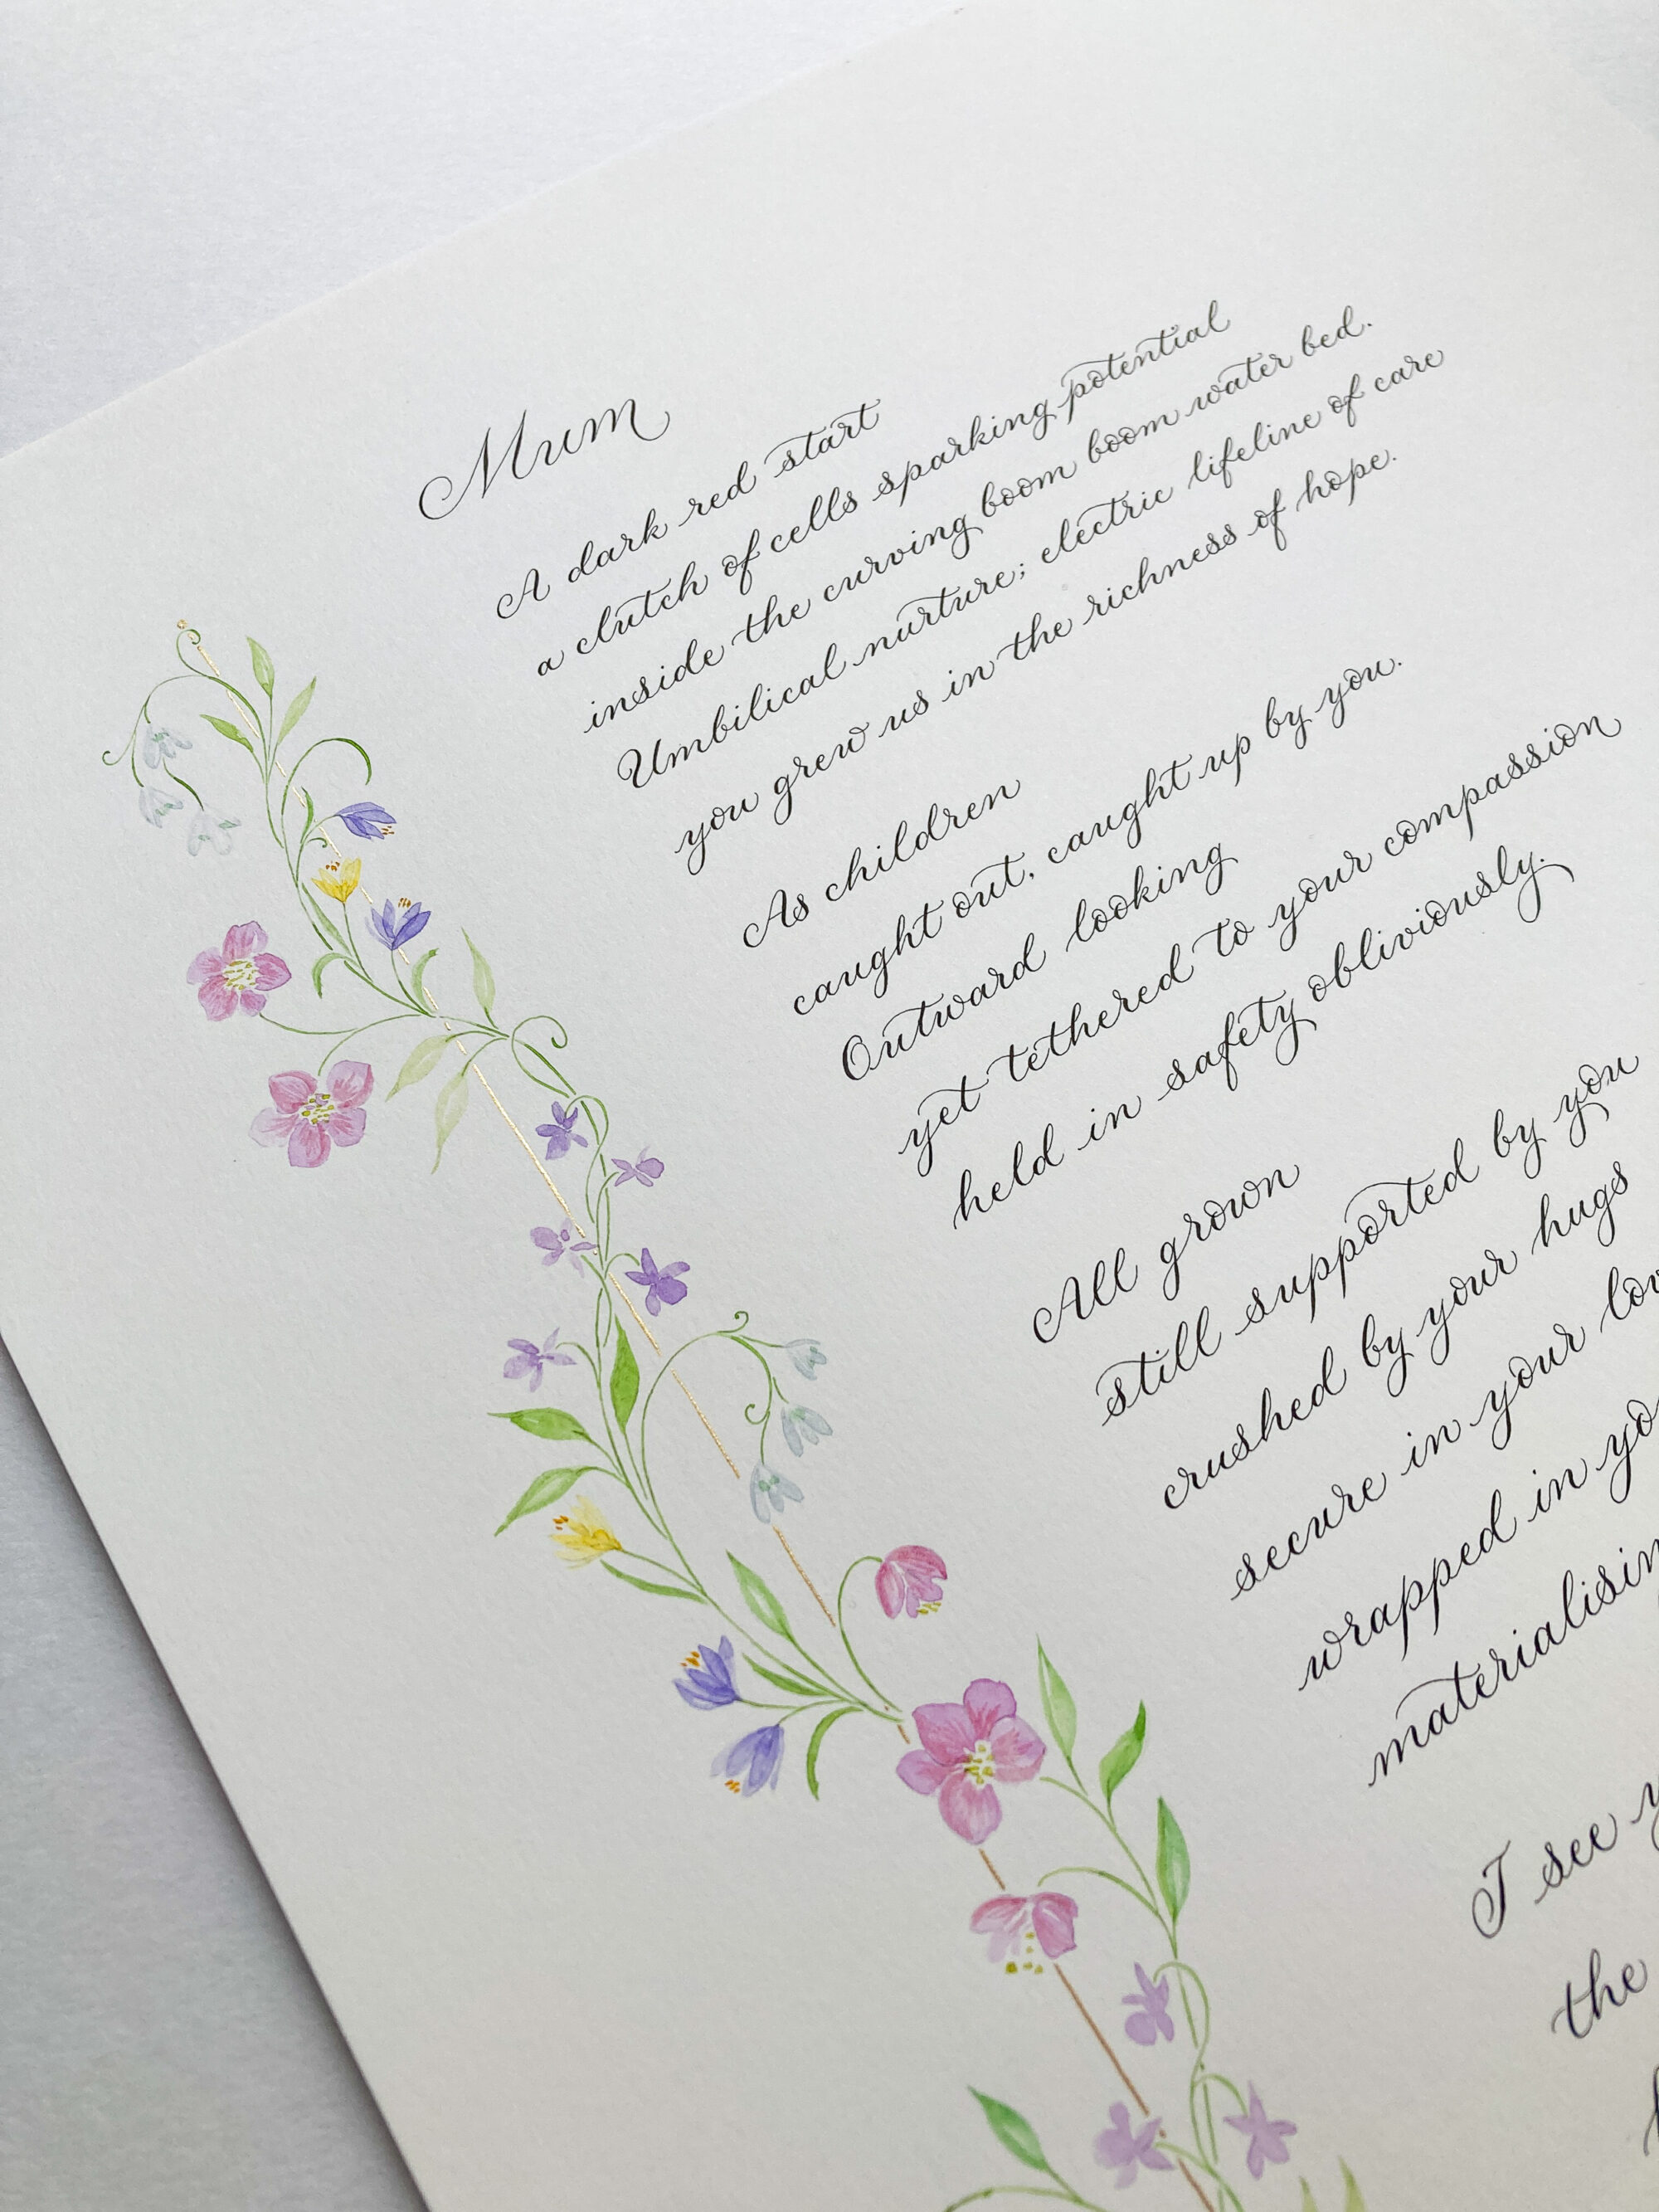 Mum
A dark red start
a clutch of cells sparking potential
inside the curving boom boom water bed.
Umbilical nurture; electric lifeline of care
you grew us in the richness of hope.
As children
caught out, caught up by you.
Outward looking
yet tethered to your compassion
held in safety obliviously.
All grown
still supported by you
crushed by your hugs
secure in your
wrapped in
I see
the